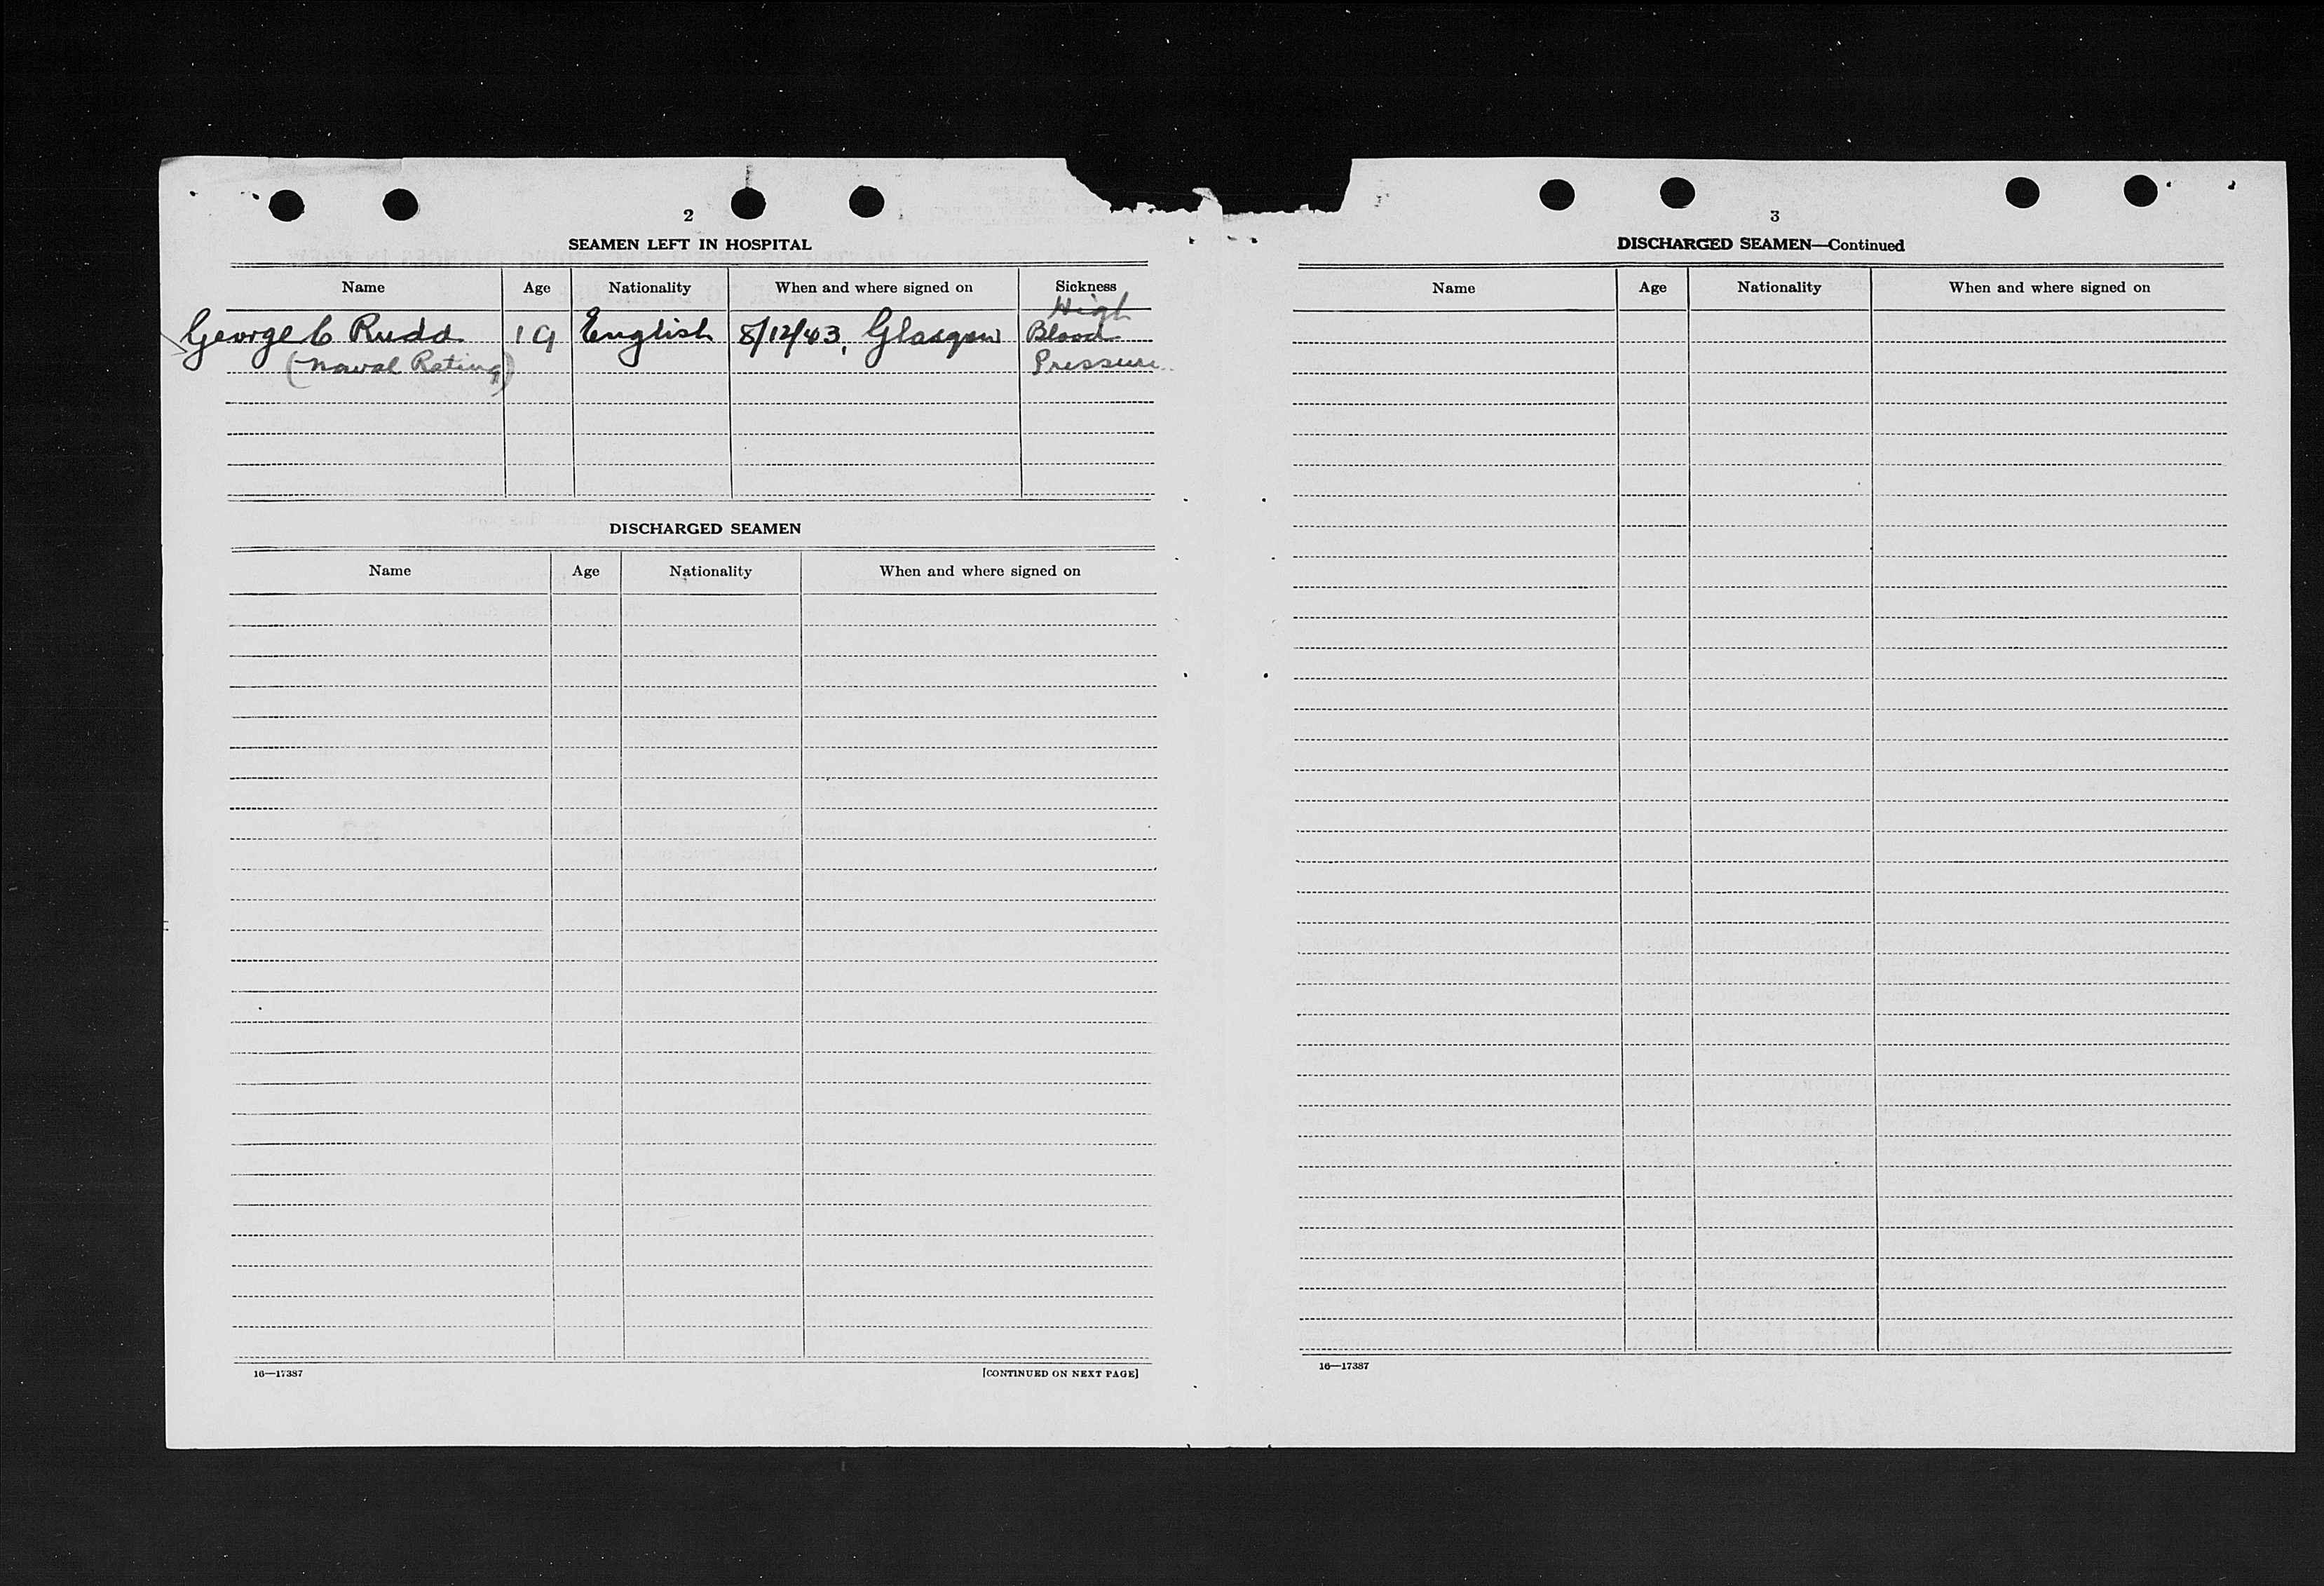 2
SEAMEN LEFT IN HOSPITAL
Name Age Nationality When and where signed on Sickness
George C Rudd 19 English 8/12/43, Glasgow High
Blood
(Naval Rating) Pressure
DISCHARGED SEAMEN
Name Age Nationality When and where signed on
16—17387 [CONTINUED ON NEXT PAGE]
3
DISCHARGED SEAMEN—Continued
Name Age Nationality When and where signed on
16—17387